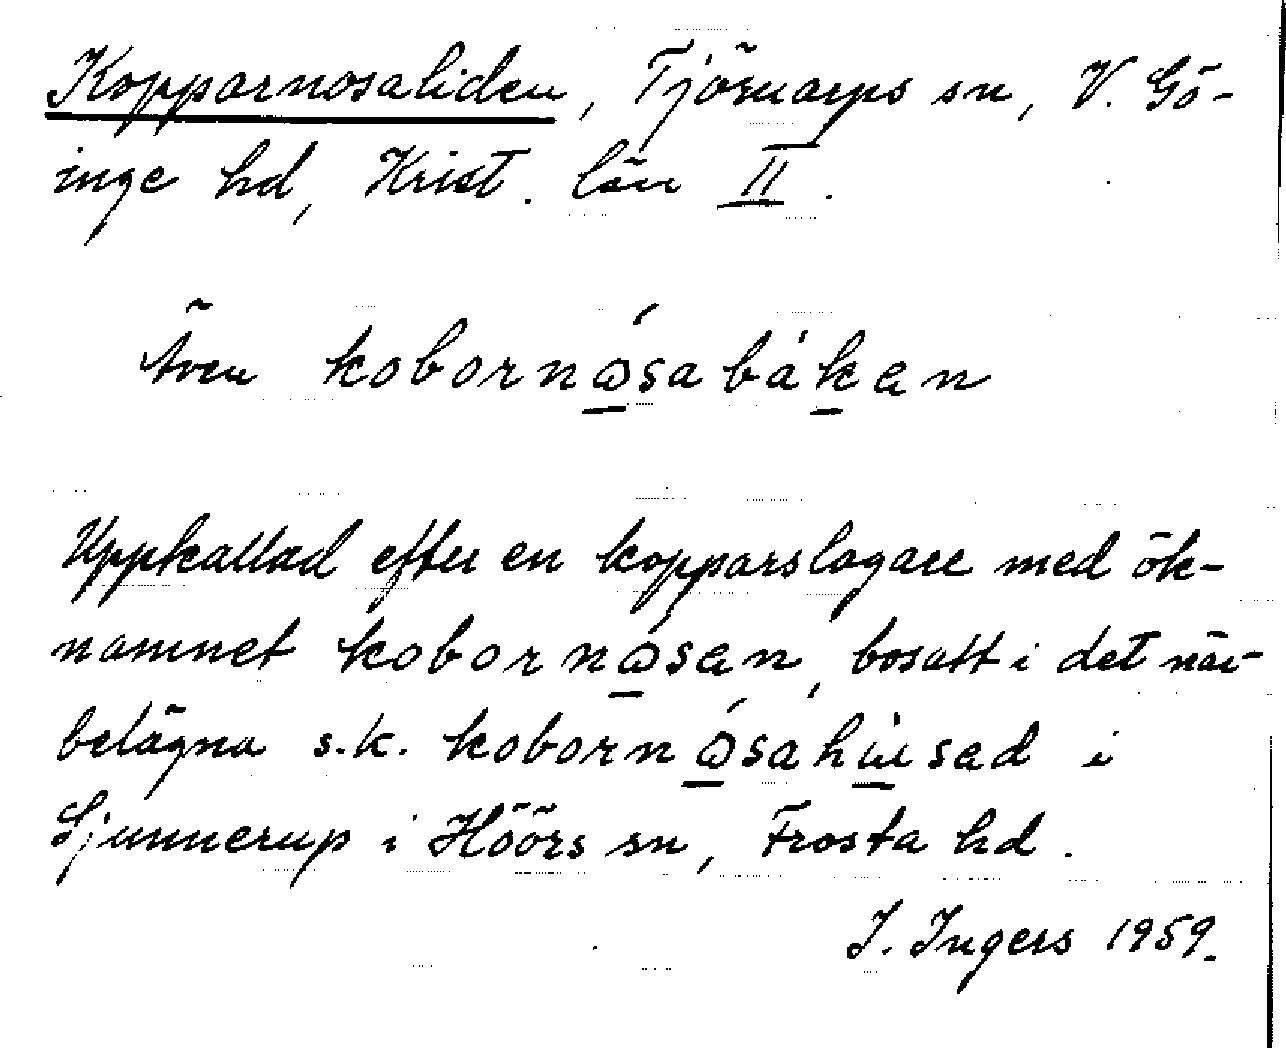 Kopparnosaliden, Tjörnarps sn, V. Gö-
inge hd, Krist. län II.
Även kobornósabákan
Uppkallad efter en kopparslagare med ök-
namnet kobornósan, bosatt i det när-
belägna s.k. kobornósahúsad i
Sjunnerup i Höörs sn, Frosta hd.
I. Ingers 1959.